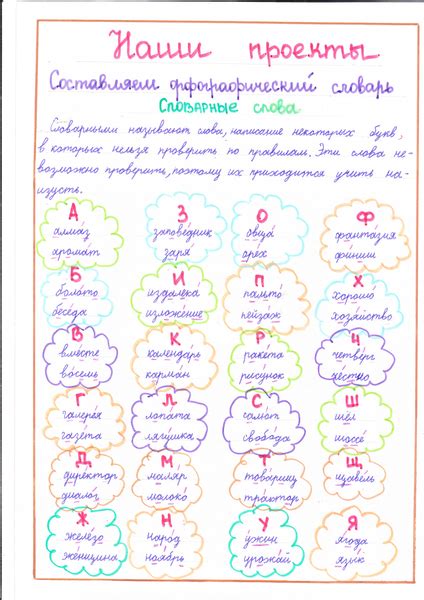 Наши проекты
Составляем орфографический словарь
Словарные слова
Словарными называют слова, написание некоторых букв,
в которых нельзя проверить по правилам. Эти слова не-
возможно проверить, поэтому их приходится учить на-
изусть.
А
алмаз
аромат
З
заповедник
заря
О
овца
орех
Ф
фантазия
финиш
Б
болото
беседа
И
издалека
изложение
П
пальто
пейзаж
Х
хорошо
хозяйство
В
вместе
восемь
К
календарь
карман
Р
ракета
рисунок
Ч
четверг
честно
Г
галерея
газета
Л
лопата
лягушка
С
салют
свобода
Ш
шёл
шоссе
Д
директор
диалог
М
маляр
молоко
Т
товарищ
трактор
Щ
щавель
Ж
железо
женщина
Н
народ
ноябрь
У
ужин
урожай
Я
ягода
язык